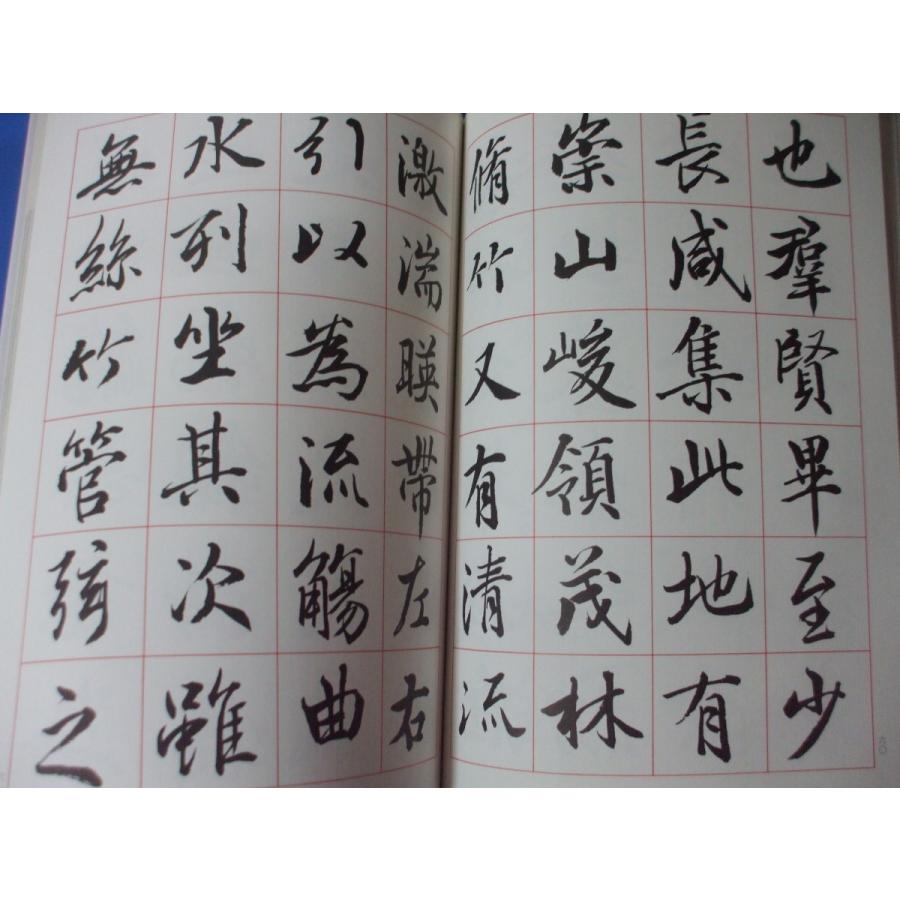 也羣賢畢至少
長咸集此地有
崇山峻領茂林
脩竹又有清流
激湍暎帶左右
引以為流觴曲
水列坐其次雖
無絲竹管弦之